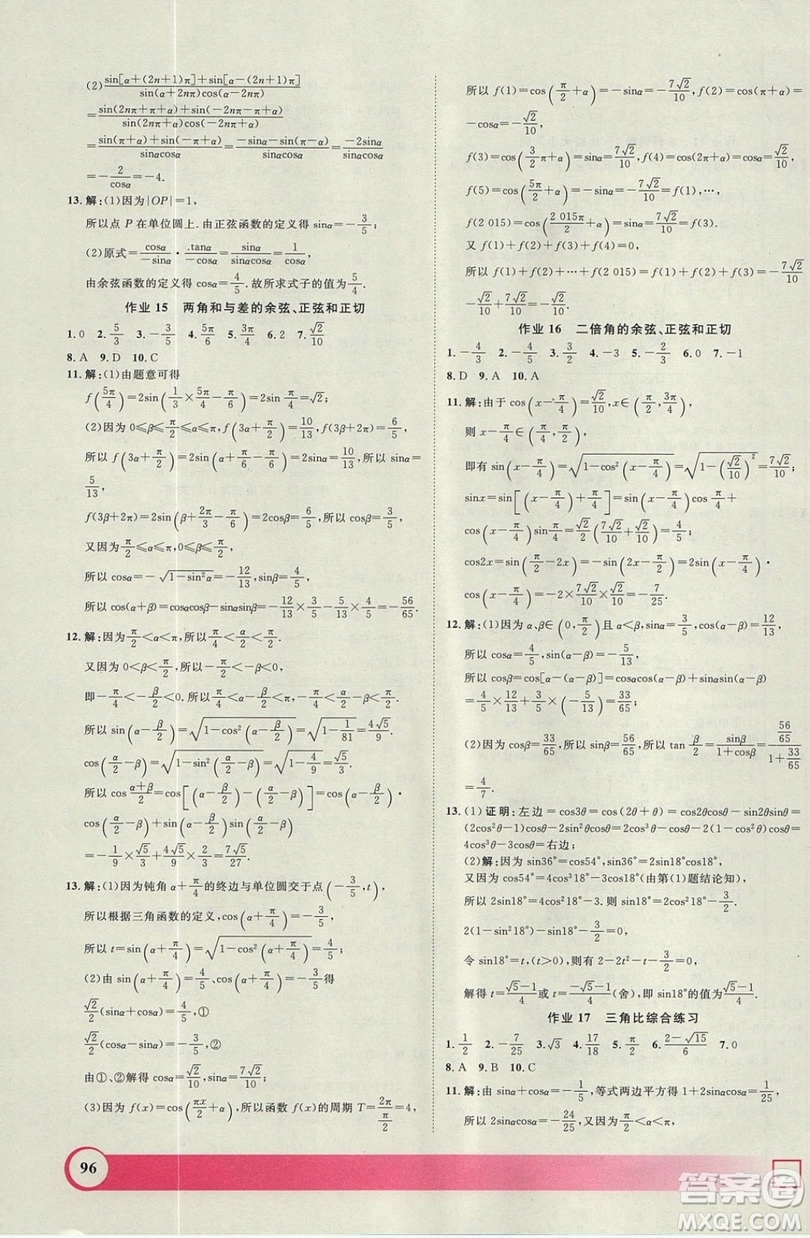 (2) sin[α+(2n+1)π]+sin[α-(2n+1)π] / sin(α+2nπ)cos(α-2nπ)
= sin(2nπ+π+α)+sin(-2nπ-π+α) / sin(2nπ+α)cos(-2nπ+α)
= sin(π+α)+sin(-π+α) / sinαcosα = -sinα-sin(π-α) / sinαcosα = -2sinα / sinαcosα
=-2/cosα=-4.
13.解:(1)因为|OP|=1,
所以点 P 在单位圆上.由正弦函数的定义得 sinα=-3/5;
(2)原式=cosα/-sinα·.tanα/-cosα=sinα/sinαcosα=1/cosα.
由余弦函数的定义得 cosα=4/5.故所求式子的值为5/4.
作业 15 两角和与差的余弦、正弦和正切
1.0 2.5/3 3.-3/5 4.5π/6 5.3π/4 6.2 7.√2/10
8.A 9.D 10.C
11.解:(1)由题意可得
f(5π/4)=2sin(1/3×5π/4-π/6)=2sinπ/4=√2;
(2)因为 0≤β≤π/2≤α≤π,f(3α+π/2)=10/13,f(3β+2π)=6/5,
所以 f(3α+π/2)=2sin(α+π/6-π/6)=2sinα=10/13,所以 sinα=
5/13,
f(3β+2π)=2sin(β+2π/3-π/6)=2cosβ=6/5,所以 cosβ=3/5,
又因为π/2≤α≤π,0≤β≤π/2,
所以 cosα=-√(1-sin²α)=-12/13,sinβ=4/5,
所以 cos(α+β)=cosαcosβ-sinαsinβ=-12/13×3/5-5/13×4/5=-56/65.
12.解:因为π/2<α<π,所以π/4<α/2<π/2.
又因为 0<β<π/2,所以-π/2<-β<0,
即-π/4<-β/2<0.所以π/4<α-β/2<π,-π/4<α/2-β<π/2.
所以 sin(α-β/2)=√(1-cos²(α-β/2))=√(1-1/81)=4√5/9,
cos(α/2-β)=√(1-sin²(α/2-β))=√(1-4/9)=√5/3.
所以 cos(α+β)/2=cos[(α-β/2)-(α/2-β)]
=cos(α-β/2)cos(α/2-β)+sin(α-β/2)sin(α/2-β)
=-1/9×√5/3+4√5/9×2/3=7√5/27.
13.解:(1)因为钝角 α+π/4 的终边与单位圆交于点(-3/5,t),
所以根据三角函数的定义,cos(α+π/4)=-3/5,
所以 t=sin(α+π/4)=√(1-cos²(α+π/4))=4/5;
(2)由 sin(α+π/4)=4/5,cos(α+π/4)=-3/5得
√2/2(sinα+cosα)=4/5,①
√2/2(cosα-sinα)=-3/5,②
由①、②解得 cosα=√2/10,sinα=7√2/10;
(3)因为 f(x)=cos(πx/2+α),所以函数 f(x)的周期 T=2π/(π/2)=4,
所以 f(1)=cos(π/2+α)=-sinα=-7√2/10,f(2)=cos(π+α)=
-cosα=-√2/10,
f(3)=cos(3π/2+α)=sinα=7√2/10,f(4)=cos(2π+α)=√2/10,
f(5)=cos(5π/2+α)=-sinα=-7√2/10=f(1),…,
f(2 015)=cos(2 015π/2+α)=sinα=7√2/10=f(3).
又 f(1)+f(2)+f(3)+f(4)=0,
所以 f(1)+f(2)+…+f(2 015)=0+f(1)+f(2)+f(3)=-7√2/10
-√2/10+7√2/10=-√2/10.
作业 16 二倍角的余弦、正弦和正切
1.-4/3 2.-4/5 3.-4/5 4.2 5.-3 6.0 7.-1
8.D 9.A 10.A
11.解:由于 cos(x-π/4)=√2/10,x∈(π/2,3π/4),
则 x-π/4∈(π/4,π/2),
即有 sin(x-π/4)=√(1-cos²(x-π/4))=√(1-(√2/10)²)=7√2/10,
sinx=sin[(x-π/4)+π/4]=sin(x-π/4)cosπ/4+
cos(x-π/4)sinπ/4=√2/2(7√2/10+√2/10)=4/5;
cos2x=sin(π/2-2x)=-2sin(x-π/4)·
cos(x-π/4)=-2×7√2/10×√2/10=-7/25.
12.解:(1)因为 α、β∈(0,π/2)且 α<β,sinα=3/5,cos(α-β)=12/13,
所以 cosα=4/5,sin(α-β)=-5/13,
所以 cosβ=cos[α-(α-β)]=cosαcos(α-β)+sinαsin(α-β)
=4/5×12/13+3/5×(-5/13)=33/65;
(2)因为 cosβ=33/65,所以 sinβ=56/65,所以 tanβ/2=sinβ/1+cosβ=(56/65)/(1+33/65)
=4/7.
13.(1)证明:左边=cos3θ=cos(2θ+θ)=cos2θcosθ-sin2θsinθ=
(2cos²θ-1)cosθ-2sin²θcosθ=(2cos²θ-1)cosθ-2(1-cos²θ)cosθ=
4cos³θ-3cosθ=右边;
(2)解:sin36°=cos54°,sin36°=2sin18°cos18°,
又因为 cos54°=4cos³18°-3cos18°(由第(1)题结论知),
所以 2sin18°=4cos²18°-3.则 sin18°=2cos²18°-3/2=
2(1-sin²18°)-3/2,
令 sin18°=t,(t>0),则 t=2-2t²-3/2,
解得 t=(√5-1)/4或 t=(-√5-1)/4(舍),所以 sin18°的值为(√5-1)/4.
作业 17 三角比综合练习
1.1/2 2.-7/25 3.√3 4.17/18 5.4/3 6.(2-√15)/6 7.0
8.A 9.B 10.C
11.解:由 sinα+cosα=-1/5,等式两边平方得 1+2sinαcosα=1/25,
所以 2sinαcosα=-24/25,又因为π/2<α<π,
96
答案圈
MXQE.COM